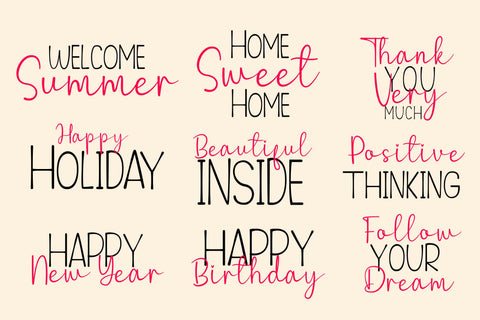 WELCOME
Summer
HOME
Sweet
HOME
Thank
YOU
Very
MUCH
Happy
HOLIDAY
Beautiful
INSIDE
Positive
THINKING
HAPPY
New Year
HAPPY
Birthday
Follow
YOUR
Dream